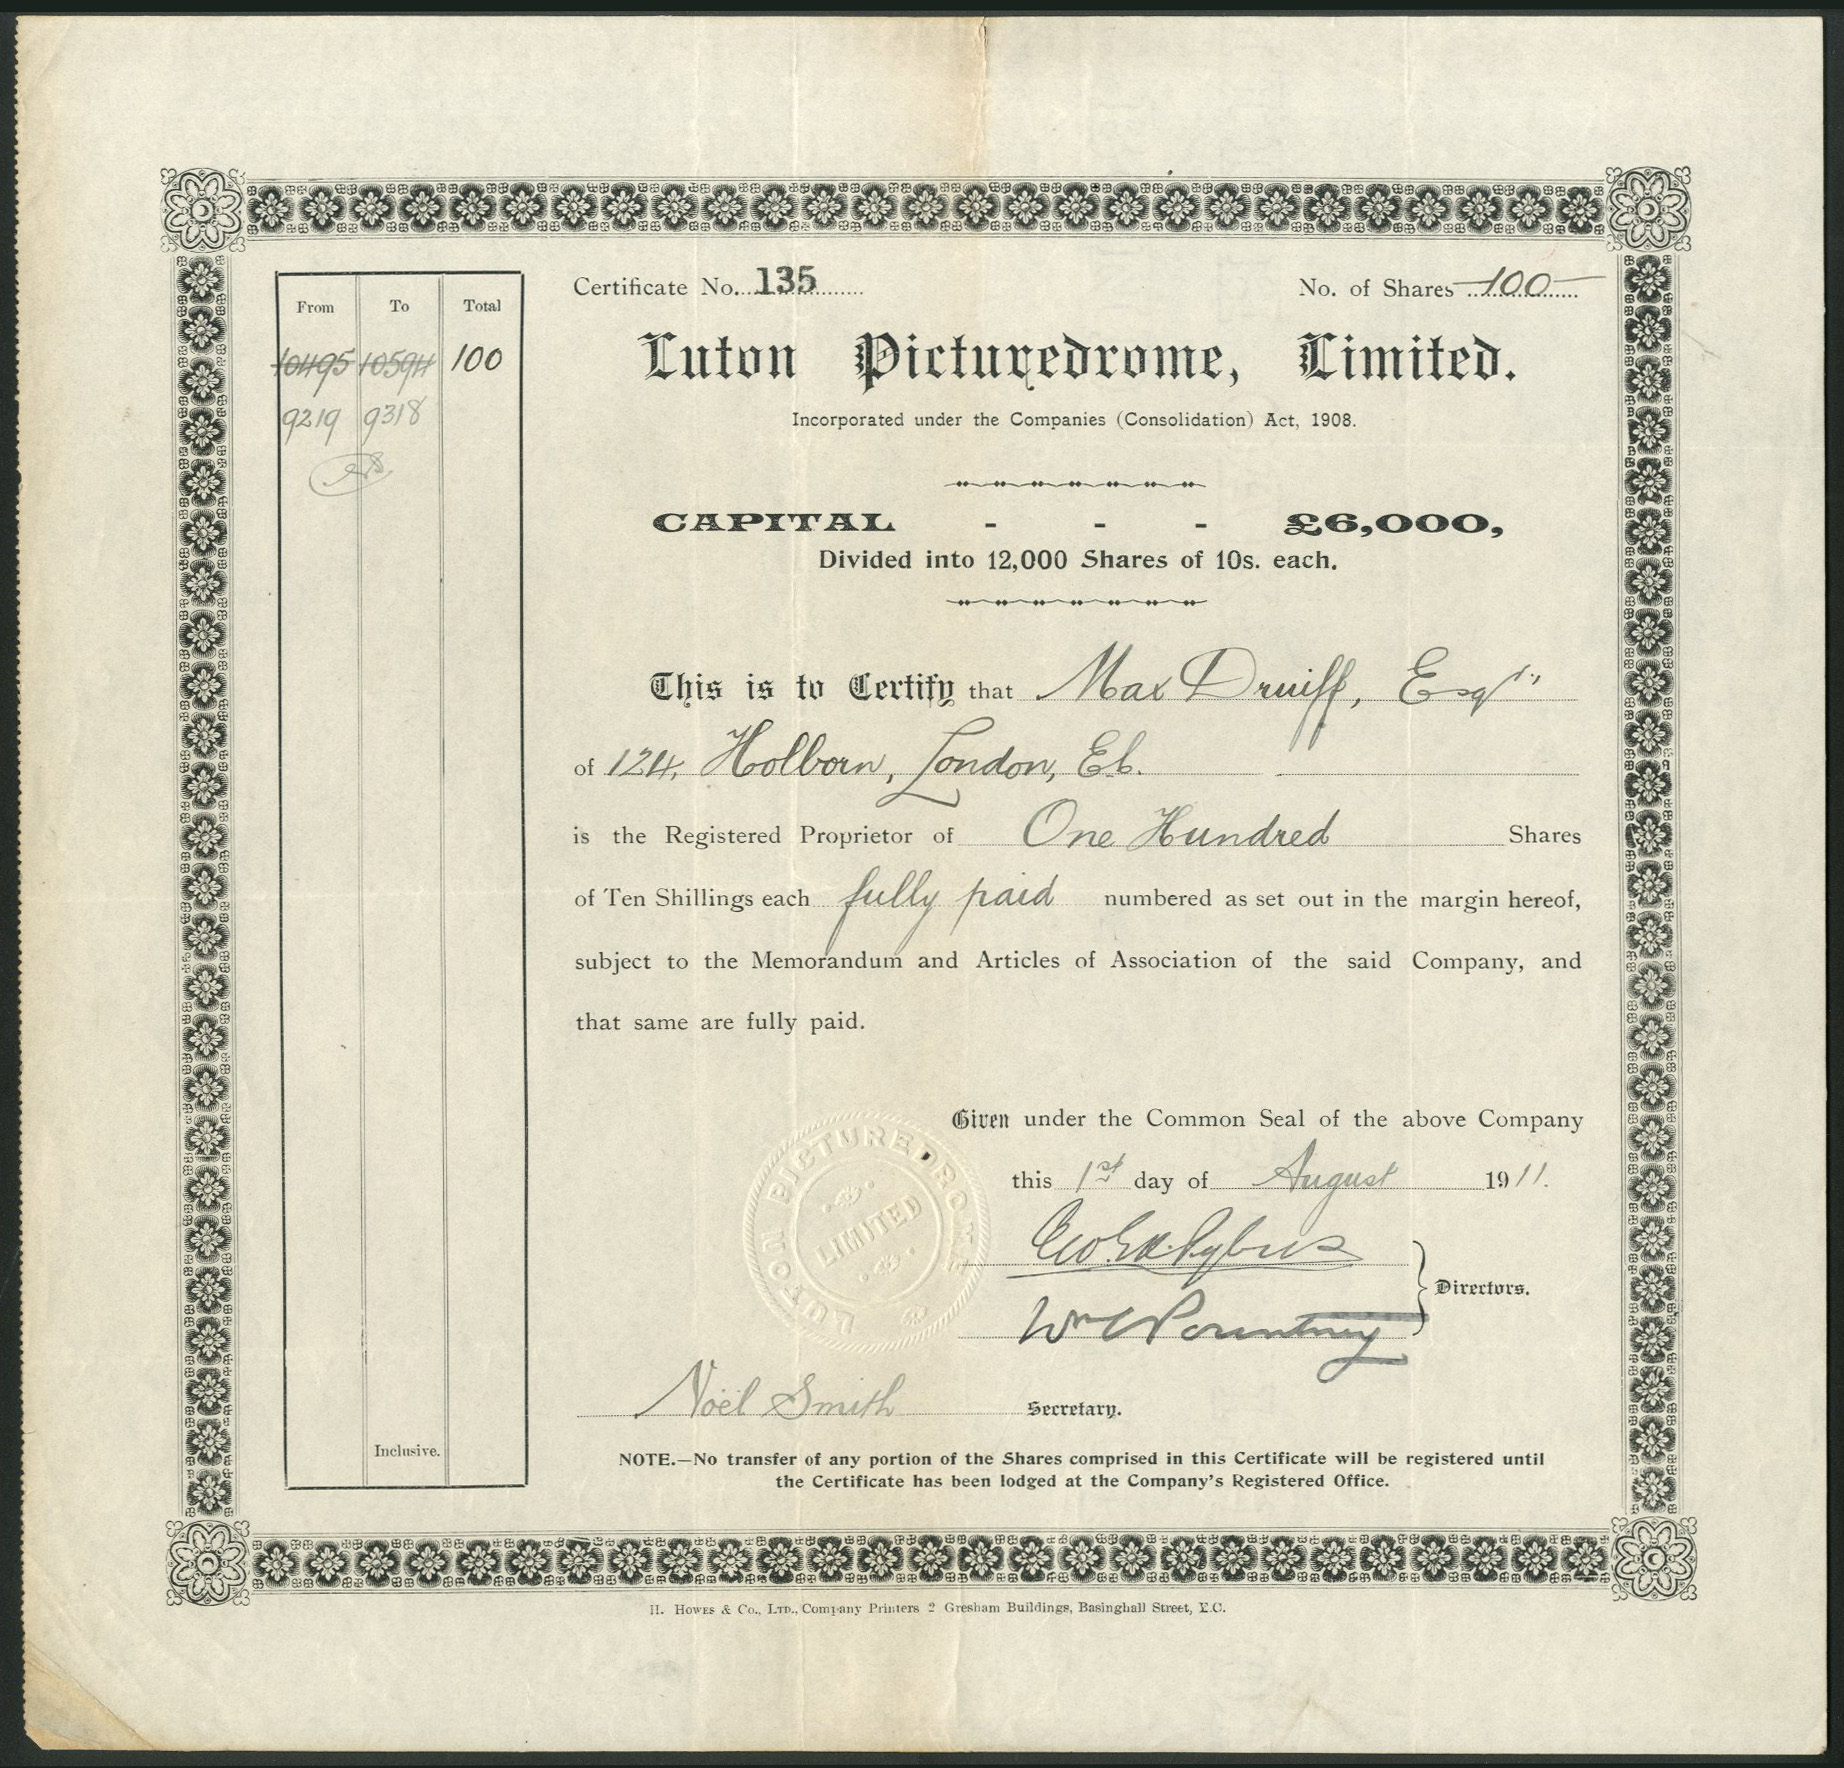 Certificate No. 135 No. of Shares 100
From To Total
10495 10594 100
9219 9318
Luton Picturedrome, Limited.
Incorporated under the Companies (Consolidation) Act, 1908.
CAPITAL - - - £6,000,
Divided into 12,000 Shares of 10s. each.
This is to Certify that Max Druiff, Esqr,
of 124, Holborn, London, E.C.
is the Registered Proprietor of One Hundred Shares
of Ten Shillings each fully paid numbered as set out in the margin hereof,
subject to the Memorandum and Articles of Association of the said Company, and
that same are fully paid.
Given under the Common Seal of the above Company
this 1st day of August 1911.
LUTON PICTUREDROME
LIMITED
Pybus
Wm C Pountney
Directors.
Noël Smith Secretary.
Inclusive.
NOTE.—No transfer of any portion of the Shares comprised in this Certificate will be registered until
the Certificate has been lodged at the Company's Registered Office.
H. Howes & Co., Ltd., Company Printers 2 Gresham Buildings, Basinghall Street, E.C.